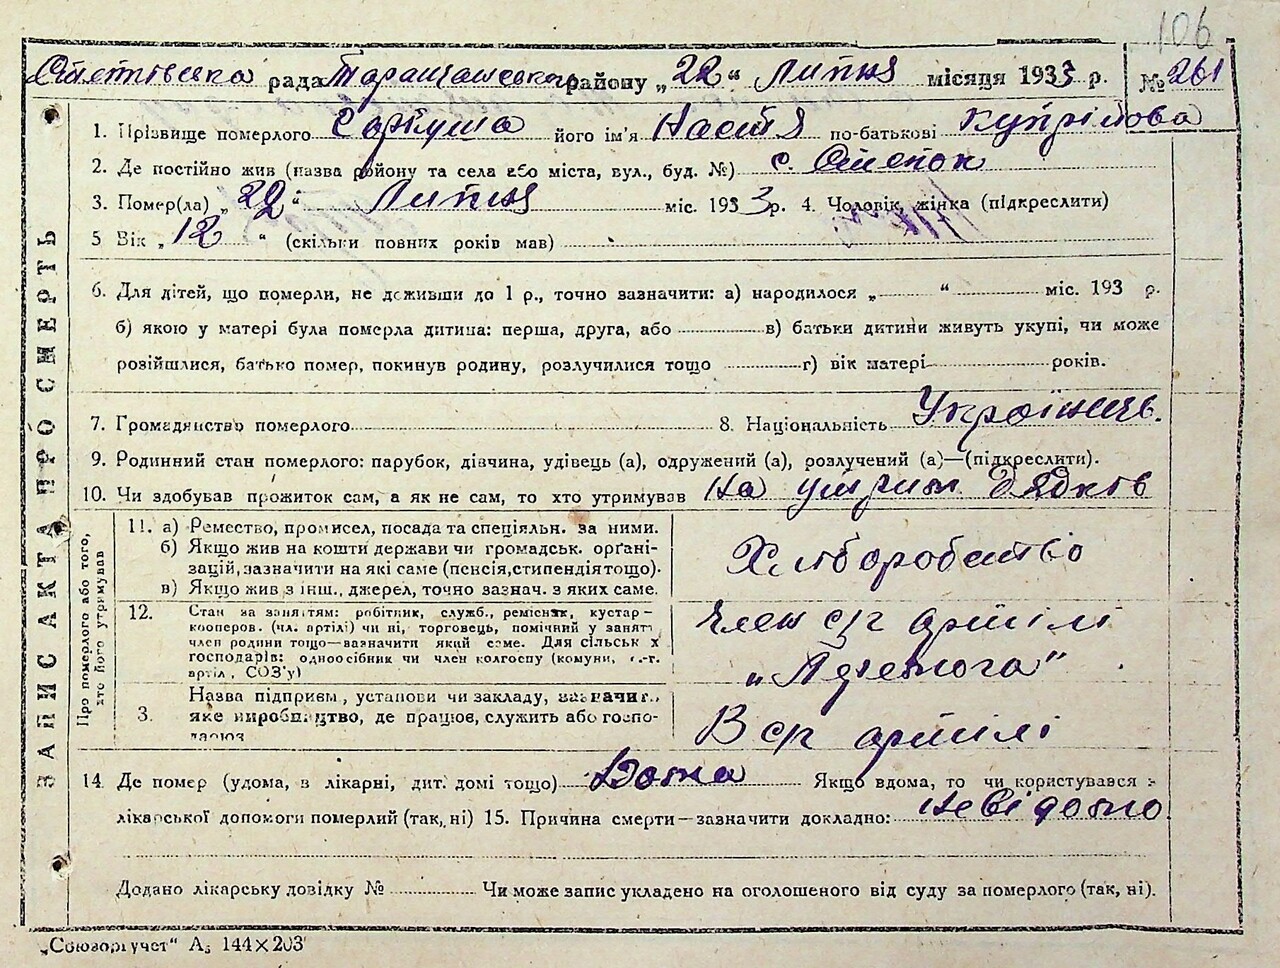 106
рада Таращанського району „22“ Липня місяця 1933 р. № 261
ЗАПИС АКТА ПРО СМЕРТЬ
1. Прізвище померлого його ім'я Настя по-батькові
2. Де постійно жив (назва району та села або міста, вул., буд. №) с. Степок
3. Помер(ла) „22“ Липня міс. 1933 р. 4. Чоловік, жінка (підкреслити)
5 Вік „12 “ (скільки повних років мав)
6. Для дітей, що померли, не доживши до 1 р., точно зазначити: а) народилося „ “ міс. 193 р.
б) якою у матері була померла дитина: перша, друга, або в) батьки дитини живуть укупі, чи може
розійшлися, батько помер, покинув родину, розлучилися тощо г) вік матері років.
7. Громадянство померлого 8. Національність Українець.
9. Родинний стан померлого: парубок, дівчина, удівець (а), одружений (а), розлучений (а)—(підкреслити).
10. Чи здобував прожиток сам, а як не сам, то хто утримував на утрим. дядків
Про померлого або того, хто його утримував
11. а) Ремество, промисел, посада та спеціяльн. за ними.
б) Якщо жив на кошти держави чи громадськ. орґані-
зацій, зазначити на які саме (пенсія, стипендія тощо).
в) Якщо жив з інш., джерел, точно зазнач. з яких саме.
Хліборобство
12. Стан за заняттям: робітник, служб., ремісник, кустар-
кооперов. (чл. артілі) чи ні, торговець, помічний у занятт
член родини тощо—вазначити який саме. Для сільськ х
господарів: одноосібник чи член колгоспу (комуни, с.-г.
артіл, СОЗ'у)
Член с/г артілі
3. Назва підприєм, установи чи закладу, зазначит.,
яке виробництво, де працює, служить або госпо-
дарює
В с/г артілі
14 Де помер (удома, в лікарні, дит. домі тощо) Дома Якщо вдома, то чи користувався з
лікарської допомоги померлий (так, ні) 15. Причина смерти—зазначити докладно: невідомо
Додано лікарську довідку № Чи може запис укладено на оголошеного від суду за померлого (так, ні).
„Союзоргучет“ А5 144×203